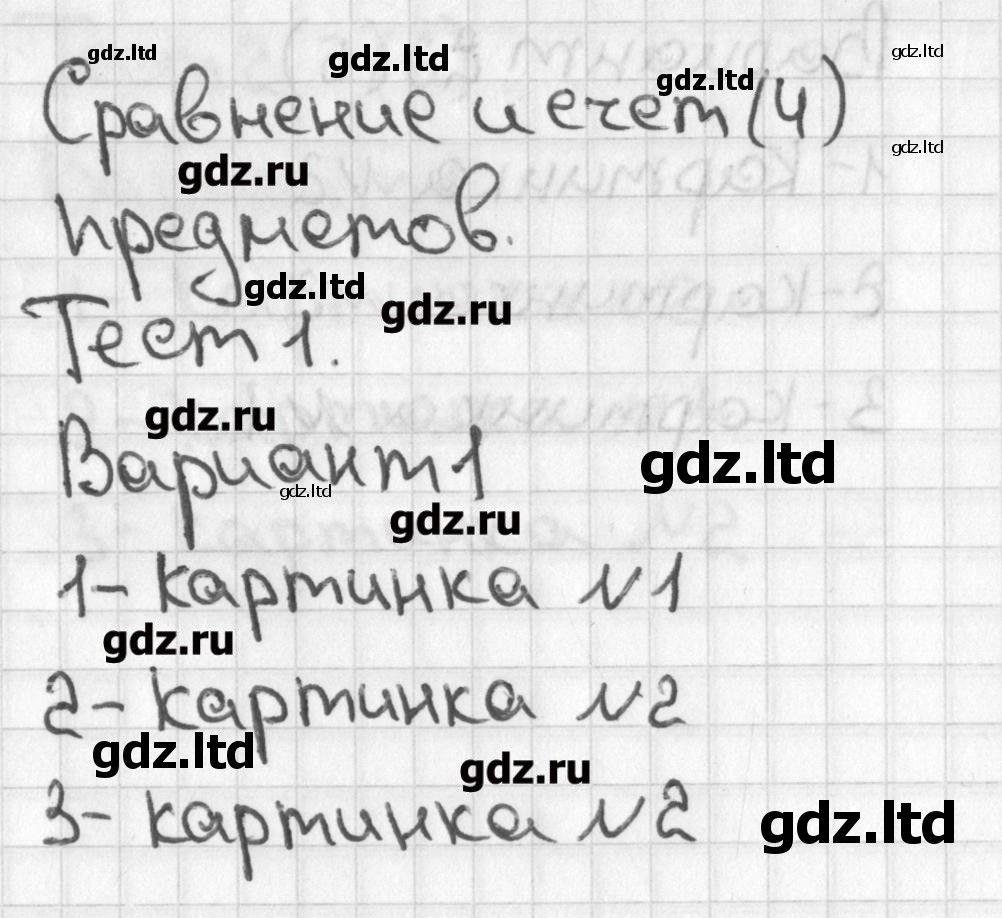 gdz.ltd gdz.ltd gdz.ltd gdz.ltd
Сравнение и счет (4)
gdz.ltd
gdz.ru
предметов.
gdz.ltd gdz.ru
Тест 1.
gdz.ru
gdz.ltd
Вариант 1
gdz.ltd
gdz.ru
1- картинка №1
gdz.ru
2- картинка №2
gdz.ltd
gdz.ru
3- картинка №2
gdz.ltd